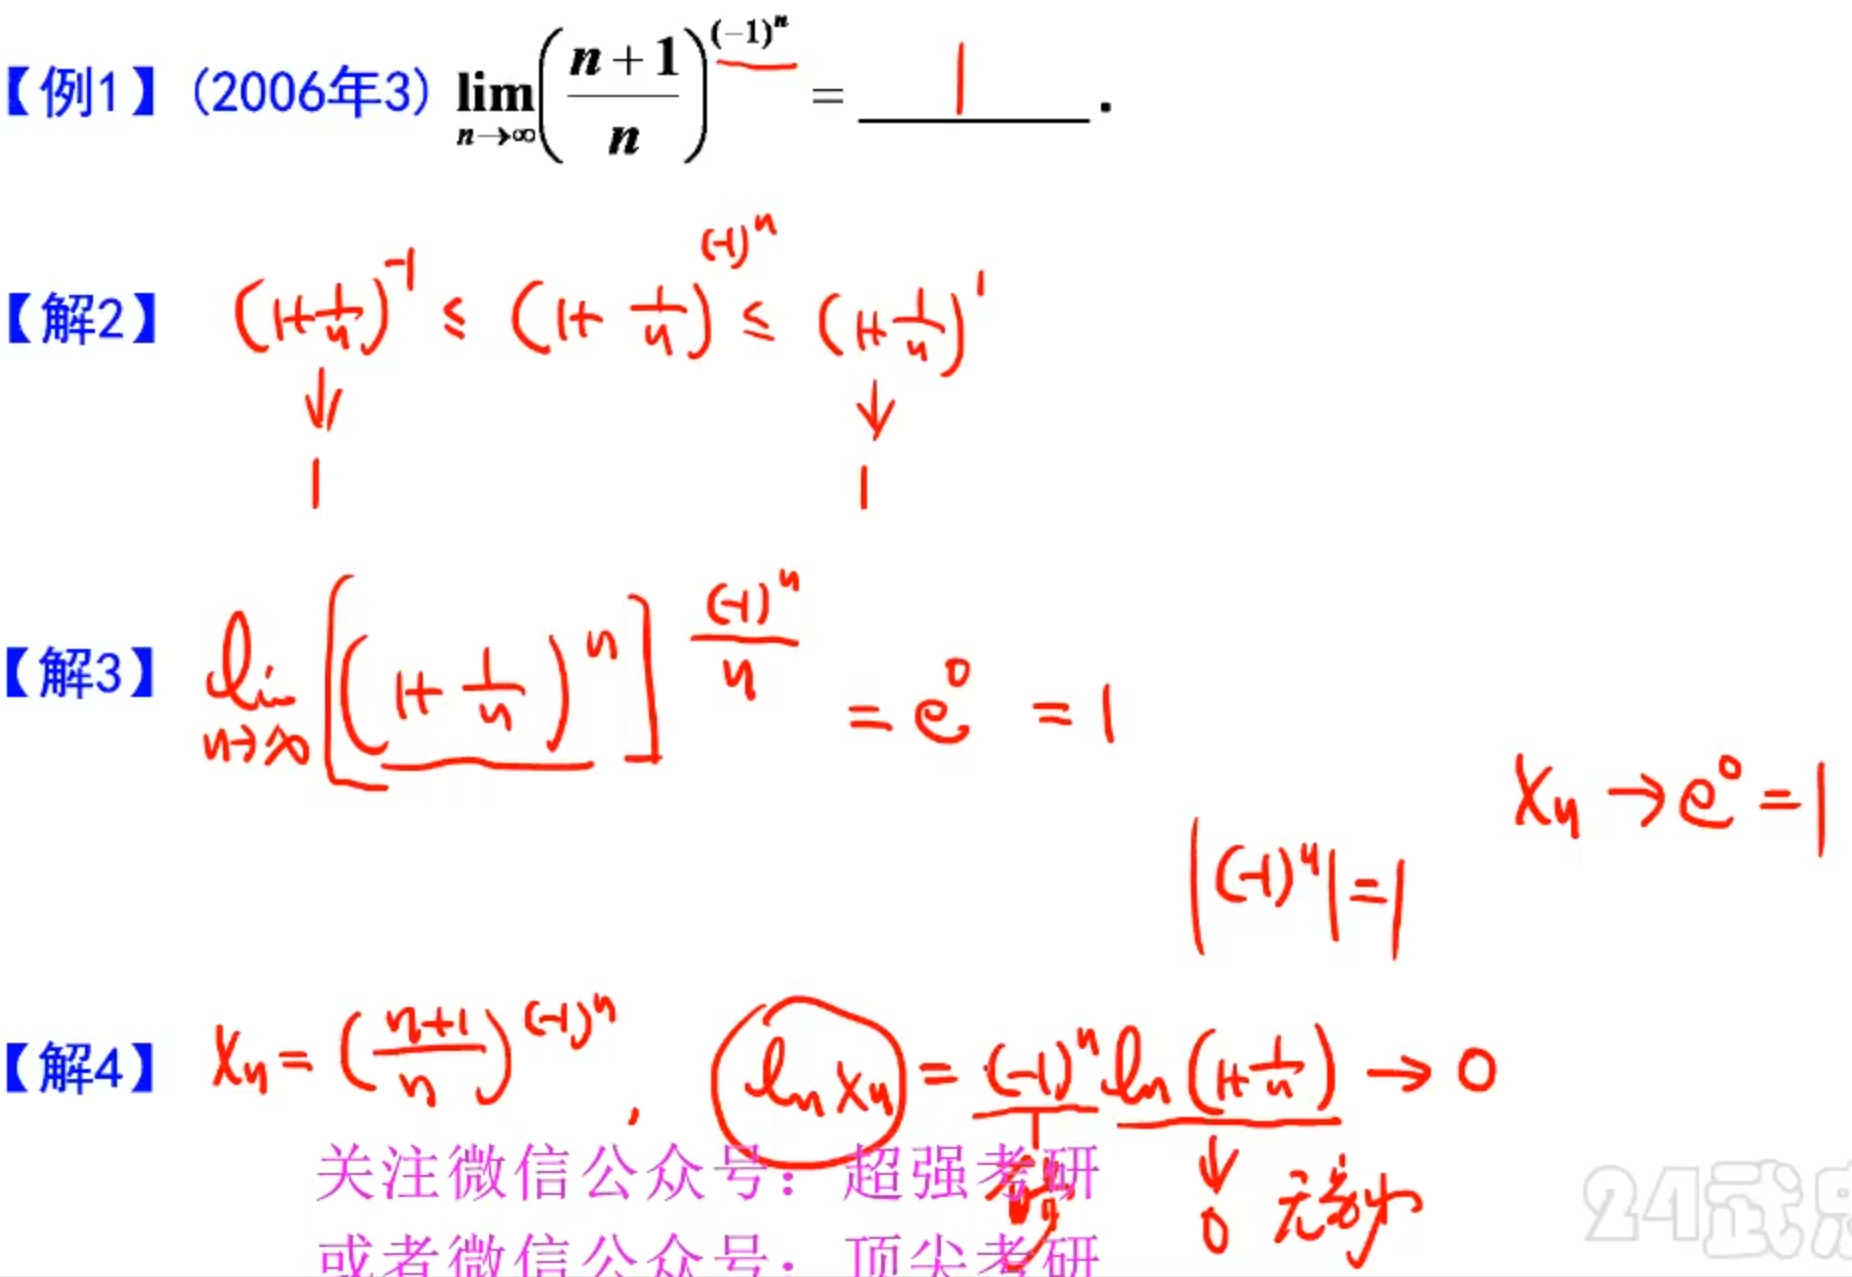 【例1】(2006年3) lim_{n→∞} ((n+1)/n)^{(-1)^n} = 1 .
【解2】 (1+1/n)^{-1} ≤ (1+1/n)^{(-1)^n} ≤ (1+1/n)^1
↓ ↓
1 1
【解3】 lim_{n→∞} [(1+1/n)^n]^{(-1)^n/n} = e^0 = 1
x_n → e^0 = 1
|(-1)^n| = 1
【解4】 x_n = ((n+1)/n)^{(-1)^n} , ln x_n = (-1)^n ln(1+1/n) → 0
↓
0 无穷小
关注微信公众号：超强考研
或者微信公众号：顶尖考研
24武忠